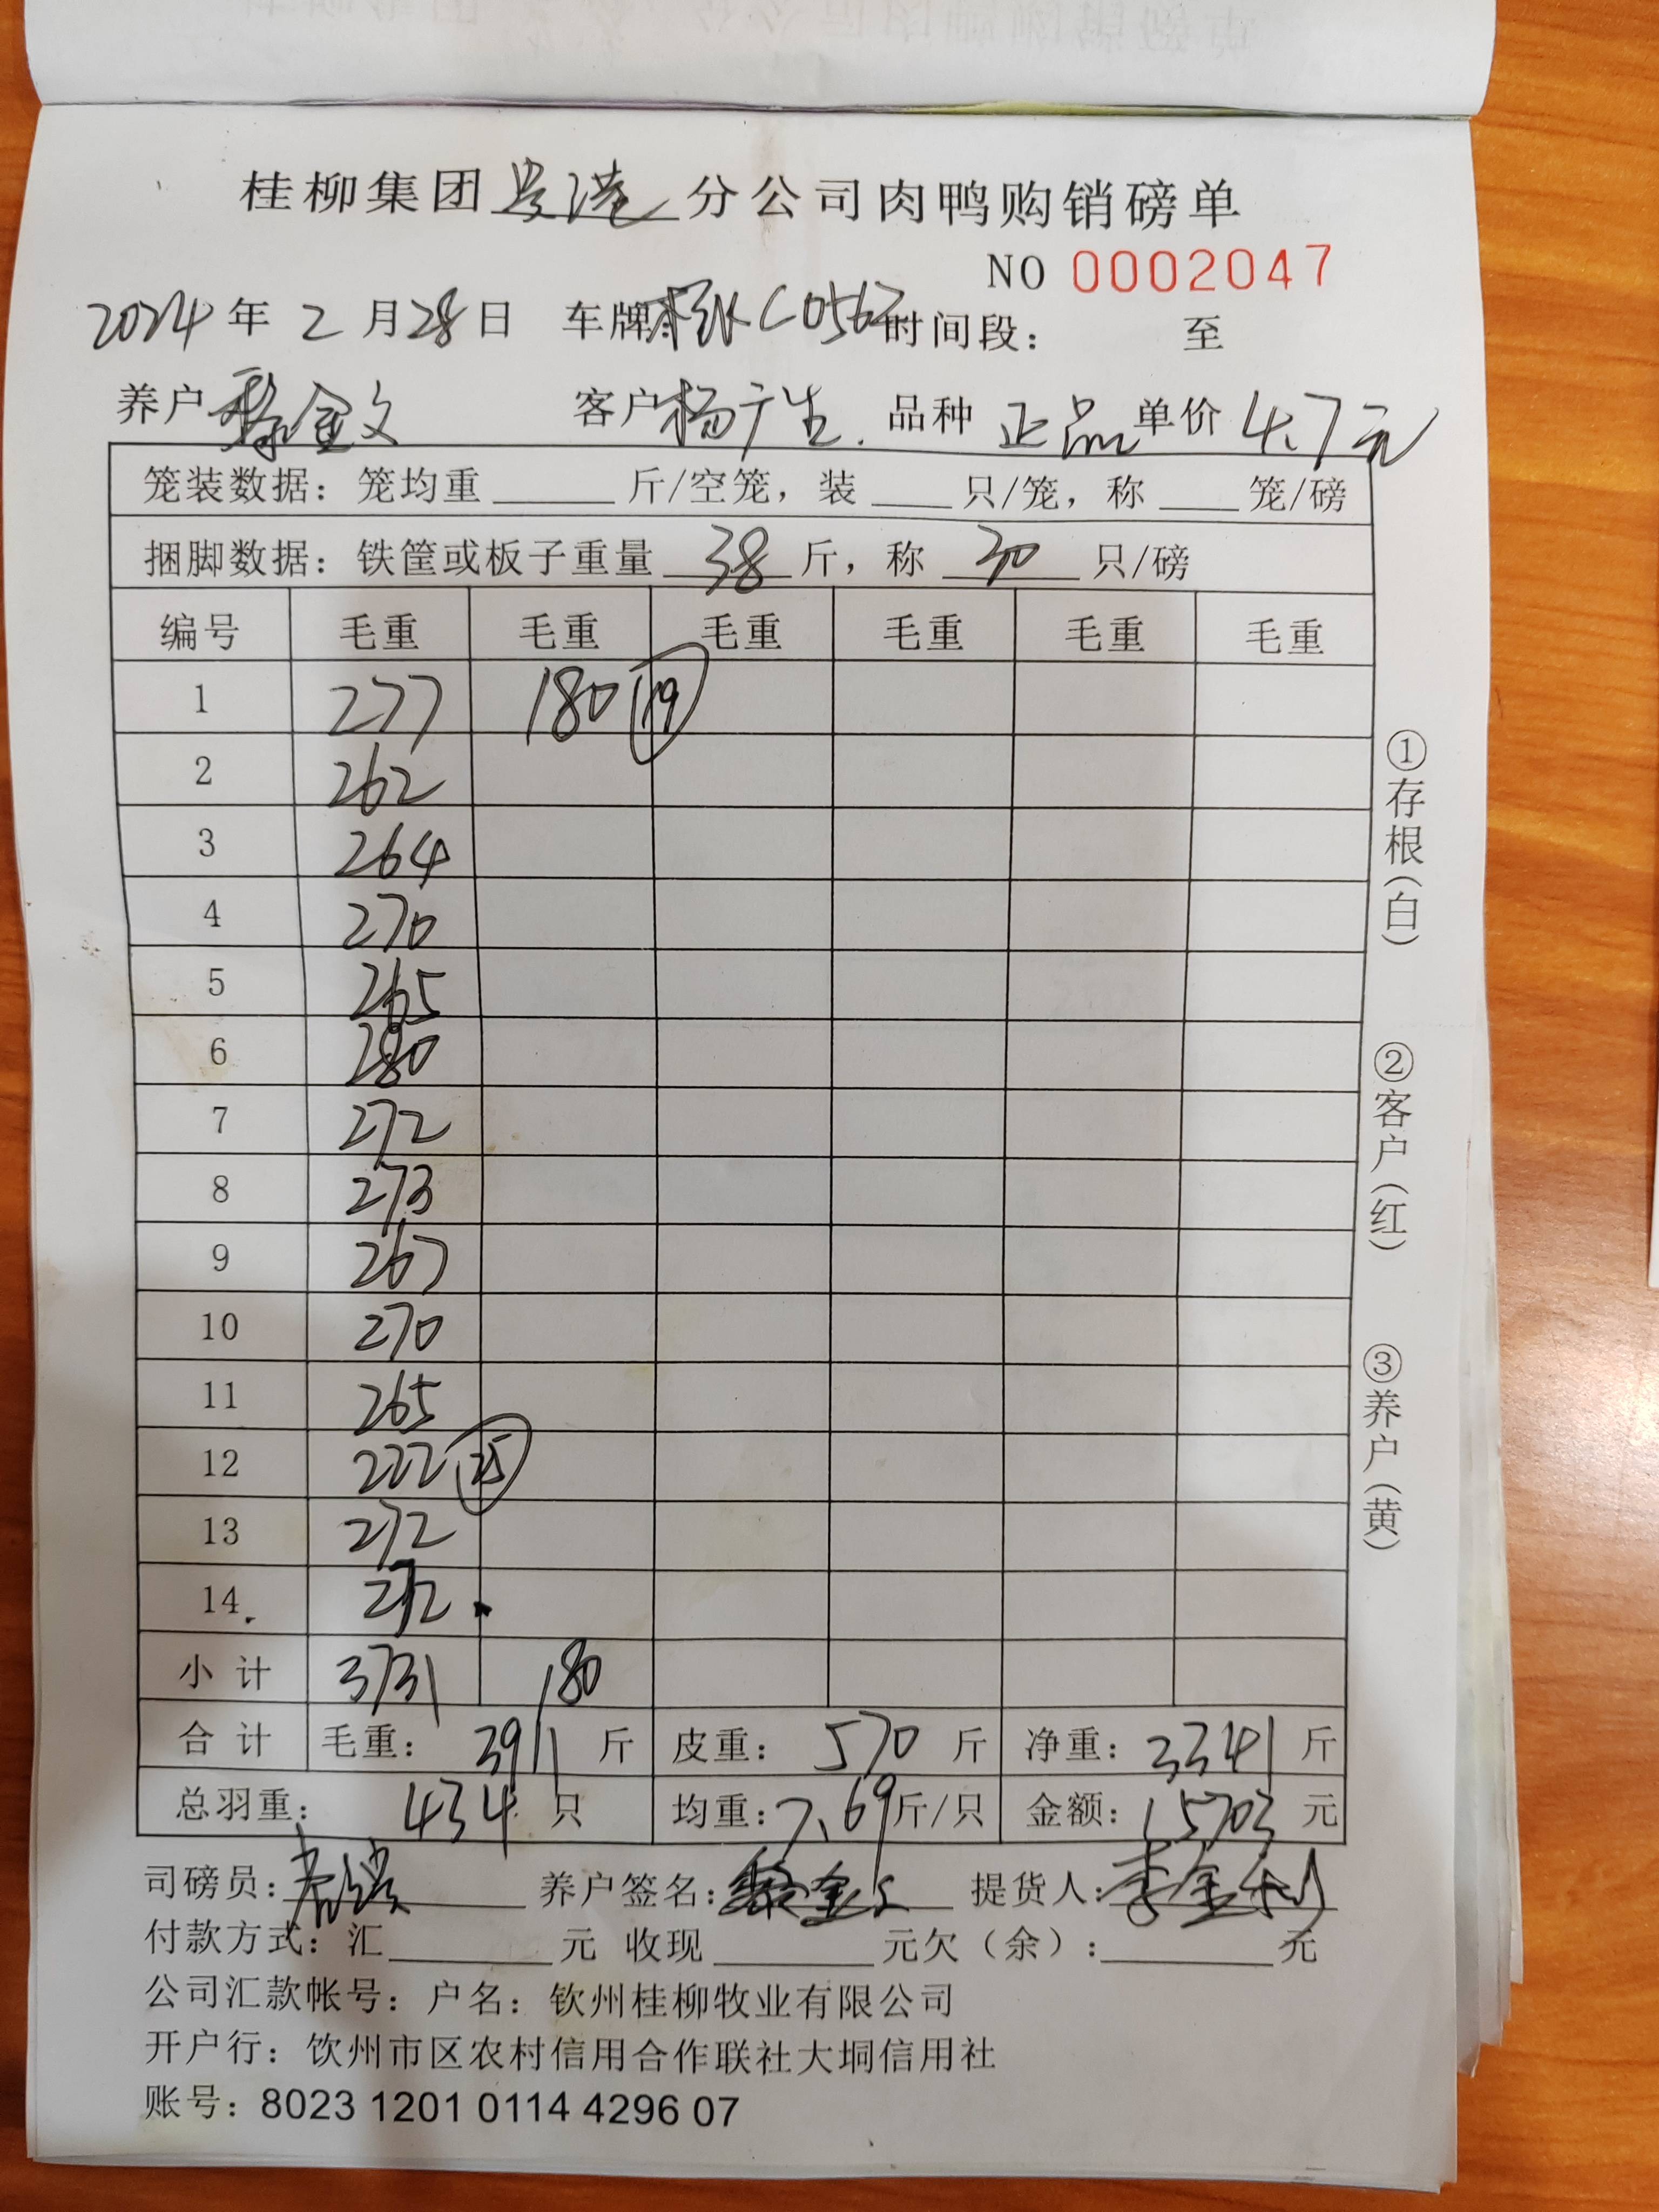 桂柳集团贵港分公司肉鸭购销磅单
NO 0002047
2024年2月28日 车牌: C0562 时间段: 至
养户 黎金文 客户 杨广生. 品种 正品 单价 4.7元
笼装数据: 笼均重 斤/空笼, 装 只/笼, 称 笼/磅
捆脚数据: 铁筐或板子重量 38 斤, 称 30 只/磅
编号 毛重 毛重 毛重 毛重 毛重 毛重
1 277 180 (19)
2 262
3 264
4 270
5 265
6 280
7 272
8 273
9 267
10 270
11 265
12 222 (25)
13 272
14. 272
小计 3731 180
合计 毛重: 3911 斤 皮重: 570 斤 净重: 3341 斤
总羽重: 434 只 均重: 7.69 斤/只 金额: 15703 元
司磅员: 养户签名: 黎金文 提货人: 李金利
付款方式: 汇 元 收现 元欠(余): 元
公司汇款帐号: 户名: 钦州桂柳牧业有限公司
开户行: 钦州市区农村信用合作联社大垌信用社
账号: 8023 1201 0114 4296 07
①存根(白)
②客户(红)
③养户(黄)